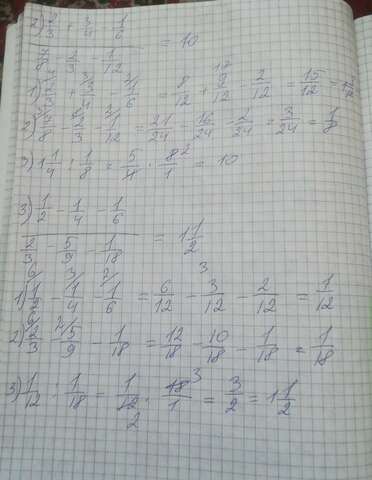 2) 2/3 + 3/4 - 1/6
———————— = 10
7/8 - 2/3 - 1/12
1) 2/3 + 3/4 - 1/6 = 8/12 + 9/12 - 2/12 = 15/12 =
2) 7/8 - 2/3 - 1/12 = 21/24 - 16/24 - 2/24 = 3/24 = 1/8
3) 1 1/4 : 1/8 = 5/4 · 8/1 = 10
3) 1/2 - 1/4 - 1/6
———————— = 1 1/2
2/3 - 5/9 - 1/18
1) 1/2 - 1/4 - 1/6 = 6/12 - 3/12 - 2/12 = 1/12
2) 2/3 - 5/9 - 1/18 = 12/18 - 10/18 - 1/18 = 1/18
3) 1/12 : 1/18 = 1/12 · 18/1 = 3/2 = 1 1/2